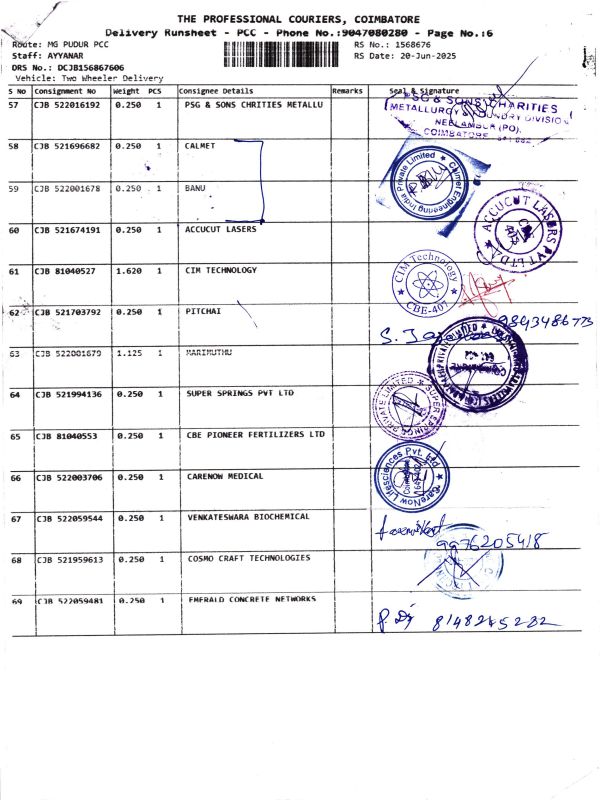 THE PROFESSIONAL COURIERS, COIMBATORE
Delivery Runsheet - PCC - Phone No.:9047080280 - Page No.:6
Route: MG PUDUR PCC RS No.: 1568676
Staff: AYYANAR RS Date: 20-Jun-2025
DRS No.: DCJB156867606
Vehicle: Two Wheeler Delivery
S No Consignment No Weight PCS Consignee Details Remarks Seal & Signature
57 CJB 522016192 0.250 1 PSG & SONS CHRITIES METALLU
PSG & SONS CHARITIES
METALLURGY & FOUNDRY DIVISION
NEELAMBUR (PO),
COIMBATORE - 641 062
58 CJB 521696682 0.250 1 CALMET
Calmet Engineering India Private Limited
59 CJB 522001678 0.250 1 BANU
60 CJB 521674191 0.250 1 ACCUCUT LASERS
ACCUCUT LASERS PVT LTD
61 CJB 81040527 1.620 1 CIM TECHNOLOGY
CIM Technology
CBE-407
62 CJB 521703792 0.250 1 PITCHAI
9843486773
63 CJB 522001679 1.125 1 MARIMUTHU
PRIVATE LIMITED
64 CJB 521994136 0.250 1 SUPER SPRINGS PVT LTD
SUPER SPRINGS PRIVATE LIMITED
65 CJB 81040553 0.250 1 CBE PIONEER FERTILIZERS LTD
66 CJB 522003706 0.250 1 CARENOW MEDICAL
CareNow Lifesciences Pvt. Ltd
67 CJB 522059544 0.250 1 VENKATESWARA BIOCHEMICAL
9976205418
68 CJB 521959613 0.250 1 COSMO CRAFT TECHNOLOGIES
69 CJB 522059481 0.250 1 EMERALD CONCRETE NETWORKS
8148245282